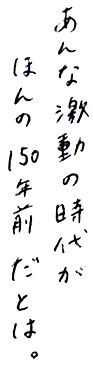 あんな激動の時代が
ほんの150年前だとは。